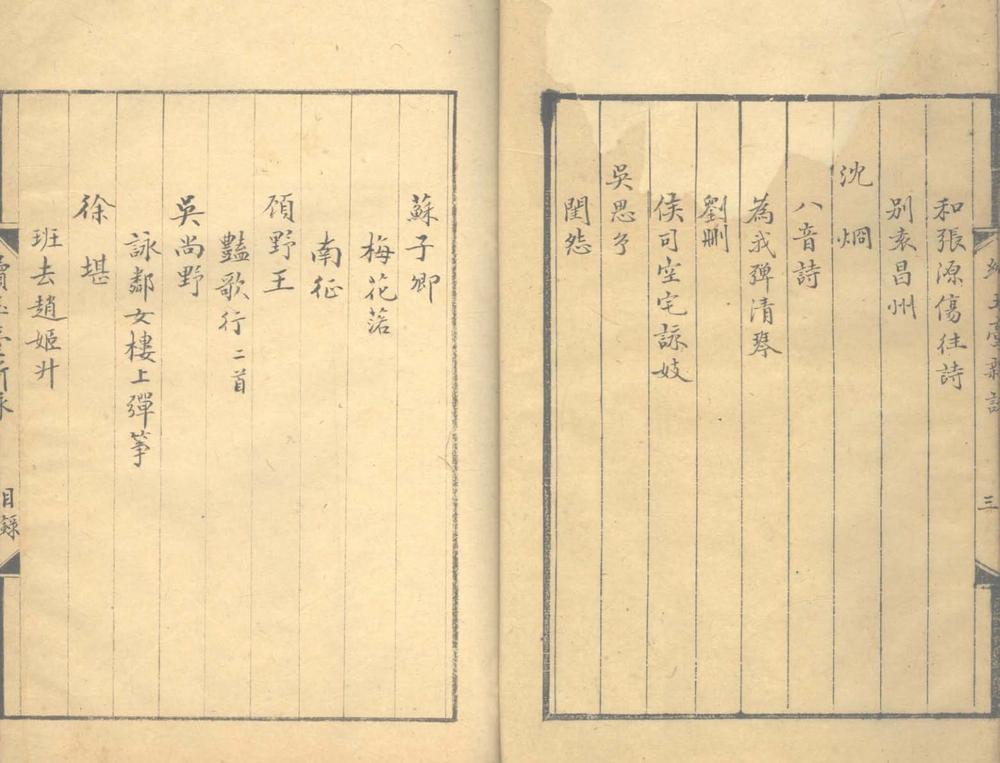 和張源傷往詩
別袁昌州
沈炯
八音詩
為我彈清琴
劉刪
侯司空宅詠妓
吳思玄
閨怨
三
蘇子卿
梅花落
南征
顧野王
豔歌行二首
吳尚野
詠鄰女樓上彈箏
徐堪
班去趙姬升
續玉臺新詠
目錄